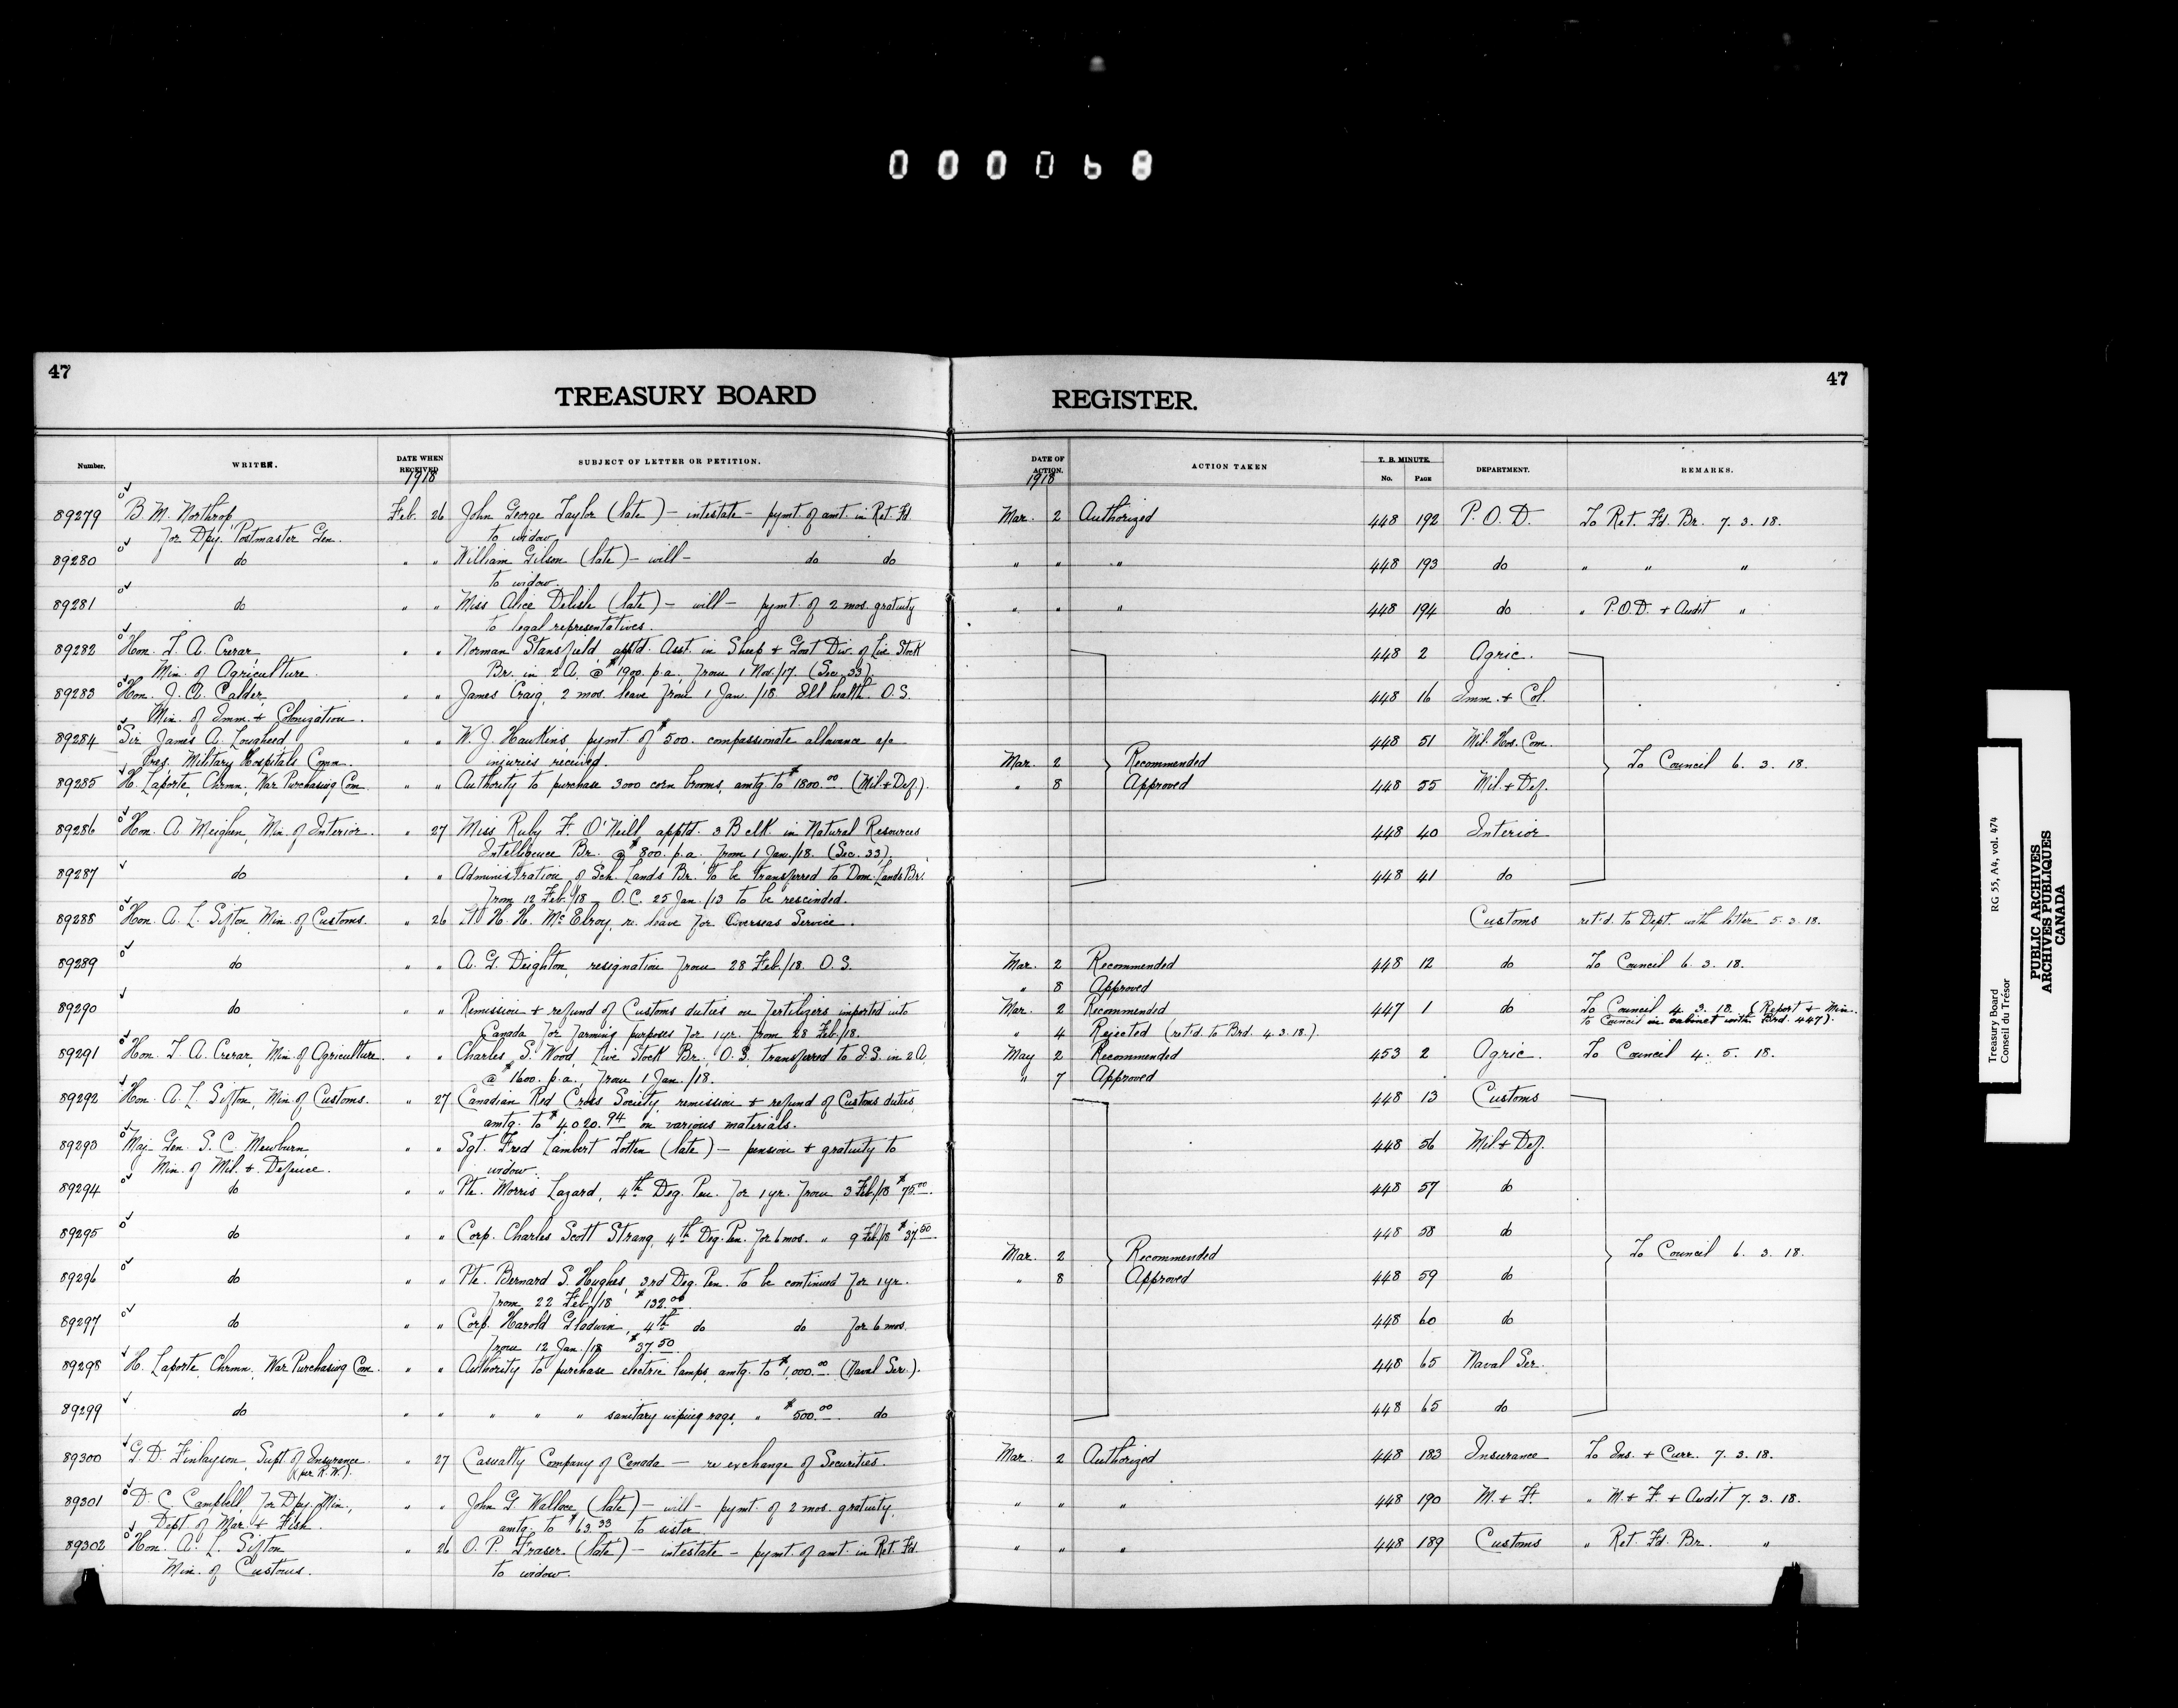 000068
47
TREASURY BOARD REGISTER.
47
Number. WRITER. DATE WHEN RECEIVED 1918 SUBJECT OF LETTER OR PETITION. DATE OF ACTION. 1918 ACTION TAKEN T. B. MINUTE. No. PAGE DEPARTMENT. REMARKS.
89279 B. M. Northrop Feb. 26 John George Taylor (late) – intestate – pymt. of amt. in Ret. Fd. Mar. 2 Authorized 448 192 P. O. D. To Ret. Fd. Br. 7. 3. 18.
for Dpy. Postmaster Gen. to widow.
89280 do " " William Gilson (late) – will – do do " " " 448 193 do " " "
to widow.
89281 do " " Miss Alice Delisle (late) – will – pymt. of 2 mos. gratuity " " " 448 194 do " P.O.D. + Audit "
to legal representatives.
89282 Hon. T. A. Crerar " " Norman Stansfield apptd. Asst. in Sheep + Goat Div. of Live Stock 448 2 Agric.
Min. of Agriculture. Br. in 2 A. @ $1900. p.a. from 1 Nov./17. (Sec. 33)
89283 Hon. J. A. Calder " " James Craig, 2 mos. leave from 1 Jan. /18 Ill health. O.S. 448 16 Imm. + Col.
Min. of Imm. + Colonization.
89284 Sir James A. Lougheed " " W. J. Hawkins, pymt. of $500. compassionate allowance a/c 448 51 Mil. Hos. Com.
Pres. Military Hospitals Comn. injuries received. Mar. 2 Recommended To Council 6. 3. 18.
89285 H. Laporte, Chrmn, War Purchasing Com. " " Authority to purchase 3000 corn brooms, amtg. to $1800.00 (Mil. + Def.). " 8 Approved 448 55 Mil. + Def.
89286 Hon. A. Meighen, Min. of Interior. " 27 Miss Ruby F. O'Neill apptd. 3 B clk. in Natural Resources 448 40 Interior
Intelligence Br. @ $800. p.a. from 1 Jan./18. (Sec. 33)
89287 do " " Administration of Sch. Lands Br. to be transferred to Dom. Lands Br. 448 41 do
from 12 Feb./18 – O.C. 25 Jan./13 to be rescinded.
89288 Hon. A. L. Sifton, Min. of Customs. " 26 H. H. McElroy, re. leave for Overseas Service. Customs ret'd. to Dept. with letter 5. 3. 18.
89289 do " " A. G. Deighton, resignation from 28 Feb./18. O.S. Mar. 2 Recommended 448 12 do To Council 6. 3. 18.
" 8 Approved
89290 do " " Remission + refund of Customs duties on Fertilizers imported into Mar. 2 Recommended 447 1 do To Council 4. 3. 18. (Report + Min.
to Council in cabinet with Brd. 447).
Canada for farming purposes for 1 yr. from 28 Feb./18. " 4 Rejected (ret'd. to Brd. 4. 3. 18.).
89291 Hon. T. A. Crerar, Min. of Agriculture. " " Charles S. Wood, Live Stock Br., O.S. transferred to I.S. in 2 A. May 2 Recommended 453 2 Agric. To Council 4. 5. 18.
@ $1600. p.a., from 1 Jan. /18. " 7 Approved
89292 Hon. A. L. Sifton, Min. of Customs. " 27 Canadian Red Cross Society, remission + refund of Customs duties 448 13 Customs
amtg. to $4020.94 on various materials.
89293 Maj. Gen. S. C. Mewburn " " Sgt. Fred Lambert Totten (late) – pension + gratuity to 448 56 Mil. + Def.
Min. of Mil. + Defence. widow.
89294 do " " Pte. Morris Lazard, 4th Deg. Pen. for 1 yr. from 3 Feb/18 $75.00. 448 57 do
89295 do " " Corp. Charles Scott Strang, 4th Deg. Pen. for 6 mos. " 9 Feb/18 $37.50. 448 58 do
Mar. 2 Recommended To Council 6. 3. 18.
89296 do " " Pte. Bernard S. Hughes, 3rd Deg. Pen. to be continued for 1 yr. " 8 Approved 448 59 do
from 22 Feb./18 $132.00
89297 do " " Corp. Harold Gladwin, 4th do do for 6 mos. 448 60 do
from 12 Jan./18 $37.50
89298 H. Laporte, Chrmn, War Purchasing Com. " " Authority to purchase electric lamps, amtg. to $1,000.00 (Naval Ser.). 448 65 Naval Ser.
89299 do " " " " " sanitary wiping rags, " $500.00 do 448 65 do
89300 G. D. Finlayson, Supt. of Insurance. " 27 Casualty Company of Canada – re exchange of Securities. Mar. 2 Authorized 448 183 Insurance To Ins. + Curr. 7. 3. 18.
(per R. W.).
89301 D. C. Campbell, for Dpy. Min., " " John G. Wallace (late) – will – pymt. of 2 mos. gratuity, " " " 448 190 M. + F. " M. + F. + Audit 7. 3. 18.
Dept. of Mar. + Fish. amtg. to $63.33 to sister.
89302 Hon. A. L. Sifton " 26 O. P. Fraser (late) – intestate – pymt. of amt. in Ret. Fd. " " " 448 189 Customs " Ret. Fd. Br. "
Min. of Customs. to widow.
Treasury Board RG 55, A4, vol. 474
Conseil du Trésor
PUBLIC ARCHIVES
ARCHIVES PUBLIQUES
CANADA